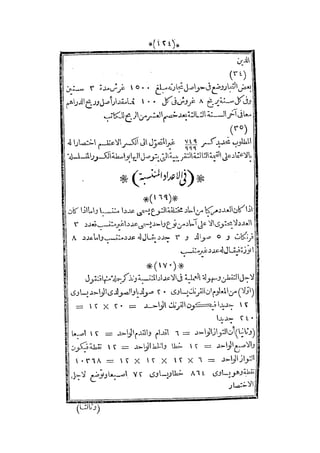 *(١٢٤)*
الدين
(٣٤)
بعض التجار وضع فى حواصل تجارته مبلغ ١٥٠٠ غرش مدة ٣ سنين
وفى كل سنة يربح ٨ غروش فى كل ١٠٠ فما مقدار أصل وربح الدراهم
معا فى آخر السنة الثالثة بعد خصم العشر من الربح للكاتب
(٣٥)
المطلوب تحديد كسر غير المتحول الى الكسر الاعظم اختصارا له
بالاعتماد على القيمة الثالثة التقريبية التى يتوصل اليها بواسطة الكسور المتسلسلة
*(فى الاعداد المنتسبة)*
*(١٦٩)*
اذا كان العدد مركبا من آحاد مختلفة النوع يسمى عددا منتسبا واما اذا كان
العدد لا يحتوى الا على آحاد من نوع واحد يسمى عددا غير منتسب فعدد ٣
فرنكات و ٥ صولد و ٣ جدد يقال له عدد منتسب واما عدد ٨
اذرع فيقال له عدد غير منتسب
*(١٧٠)*
لاجل التفطن وسهولة العملية فى الاعداد المنتسبة نذكر جملة منها فنقول
(اولا) من المعلوم ان الفرنك يساوى ٢٠ صولديا والصولدى الواحد يساوى
١٢ جديدا فيكون الفرنك الواحد = ٢٠ × ١٢ =
٢٤٠ جديدا
(وثانيا) أن التواز الواحد = ٦ اقدام والقدم الواحد = ١٢ اصبعا
والاصبع الواحد = ١٢ خطا والخط الواحد = ١٢ نقطة فيكون
التواز الواحد = ٦ × ١٢ × ١٢ × ١٢ = ١٠٣٦٨
نقطة وهو يساوى ٨٦٤ خطا ويساوى ٧٢ اصبعا ونوضع لاجل
الاختصار
(وثالثا)